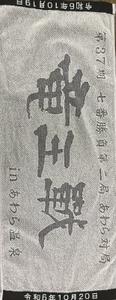 令和6年10月19日
第37期 七番勝負第二局 あわら対局
竜王戦
inあわら温泉
令和6年10月20日